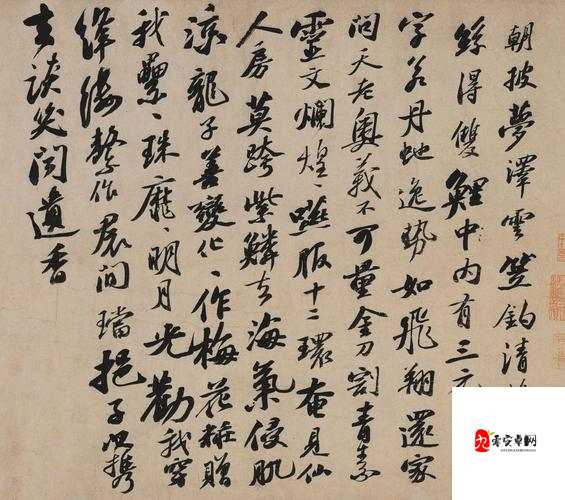 朝披夢澤雲笠釣清
絲得雙鯉中內有三元
字若丹虵逸勢如飛翔還家
問天老奧義不可量金刀割青素
靈文爛煌〻嚥服十二環奄見仙
人房莫跨紫鱗去海氣侵肌
涼龍子善變化〻作梅花粧贈
我纍〻珠靡〻明月光勸我穿
絳縷繫作裙間璫挹子以攜
去談笑聞遺香
九零安卓网